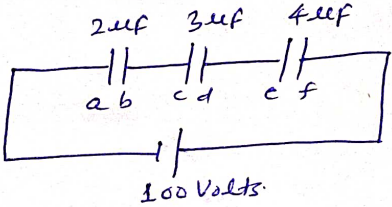 2µf 3µf 4µf
a b c d e f
100 Volts.